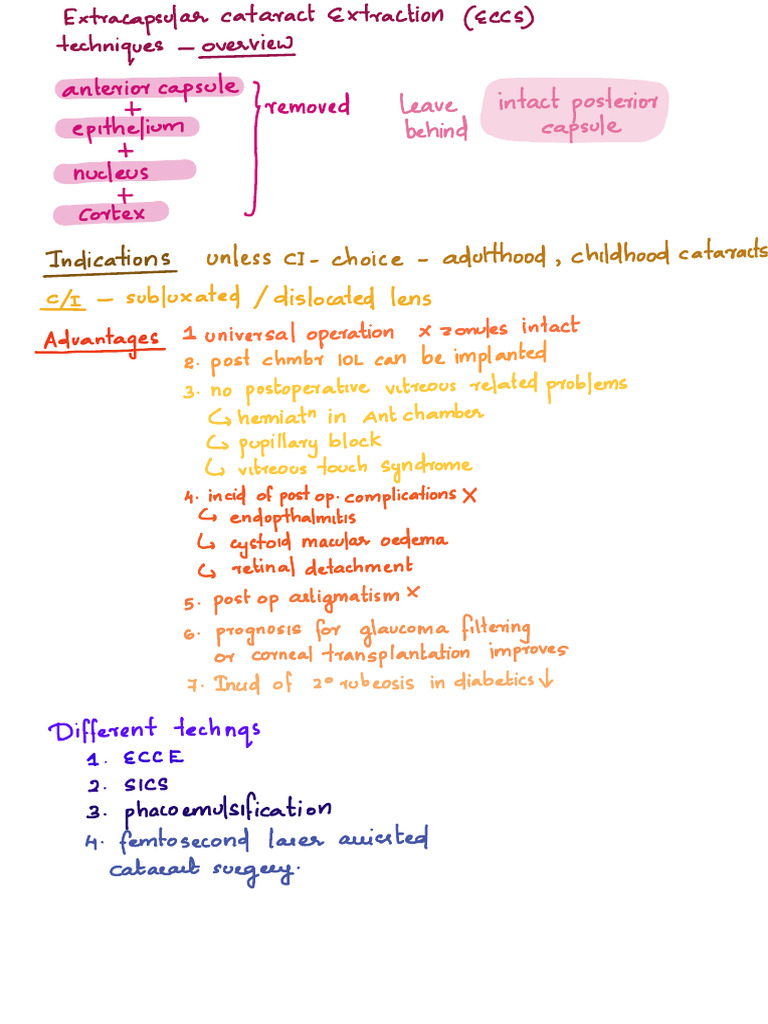 Extracapsular cataract Extraction (ECCS)
techniques - overview
anterior capsule
+
epithelium
+
nucleus
+
cortex
removed
Leave behind
intact posterior capsule
Indications unless CI - choice - adulthood, childhood cataracts
C/I - subluxated / dislocated lens
Advantages 1 universal operation x zonules intact
2. post chmbr IOL can be implanted
3. no postoperative vitreous related problems
↳ herniatⁿ in Ant chamber
↳ pupillary block
↳ vitreous touch syndrome
4. incid of post op. complications X
↳ endopthalmitis
↳ cystoid macular oedema
↳ retinal detachment
5. post op astigmatism X
6. prognosis for glaucoma filtering
or corneal transplantation improves
7. Incid of 2° rubeosis in diabetics ↓
Different technqs
1. ECCE
2. SICS
3. phacoemulsification
4. femtosecond laser assisted
cataract surgery.